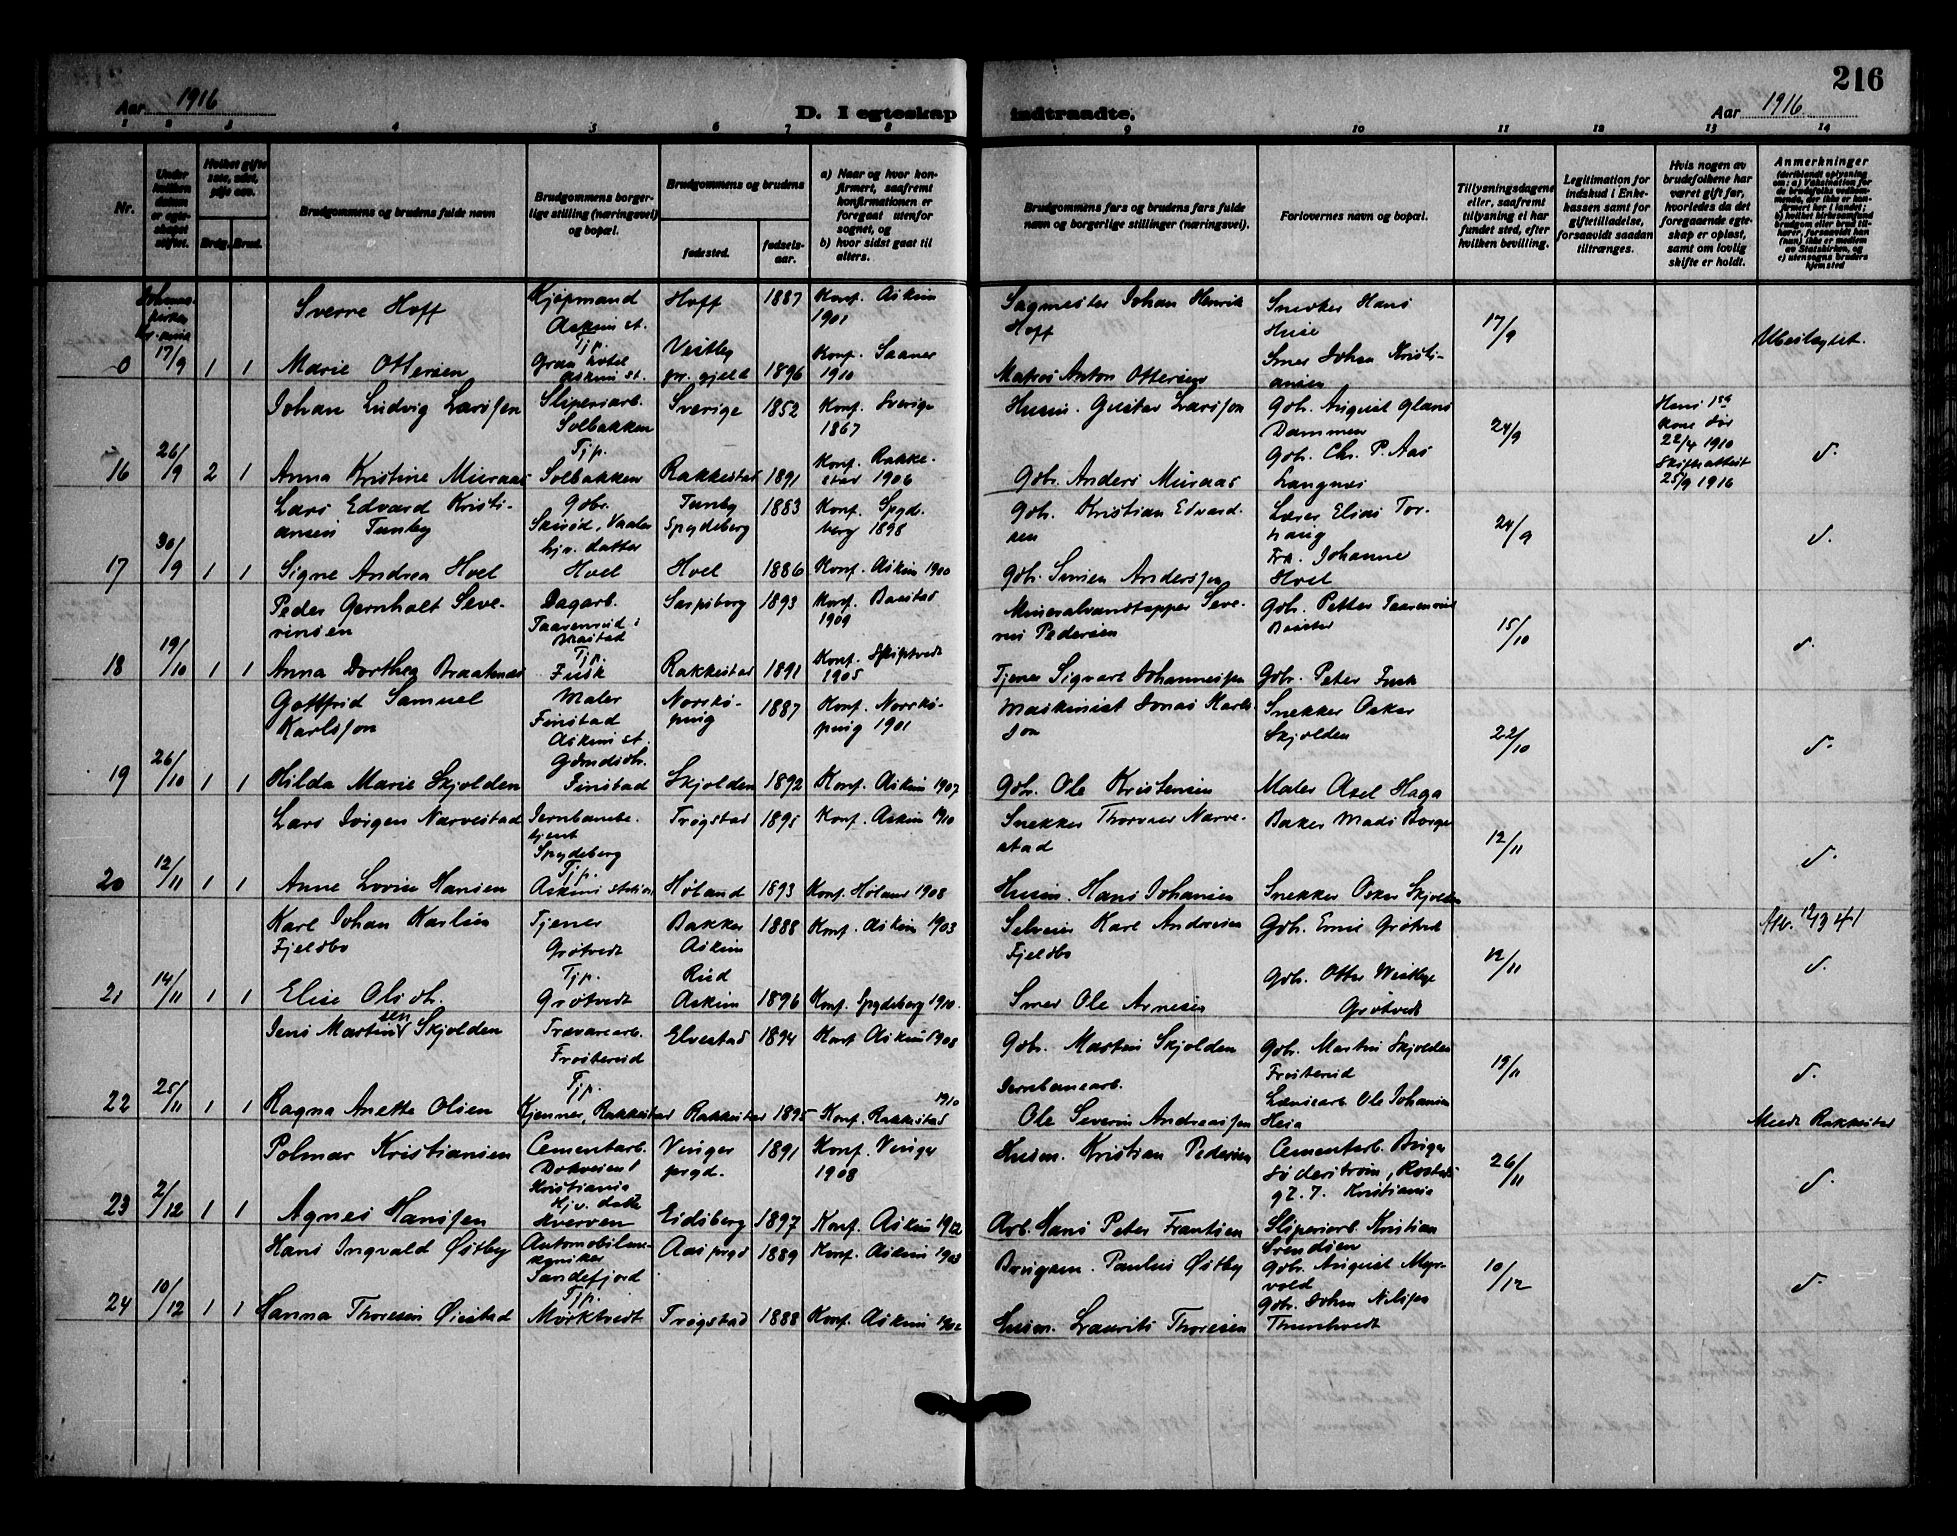 216
Aar 1916
D. I egteskap indtraadte.
Aar 1916
1 2 3 4 5 6 7 8 9 10 11 12 13 14
Nr.
Under hvilken datum er egteskapet stiftet.
Hvilket gifte 1ste, 2det, 3dje osv.
Brdg. Brud.
Brudgommens og brudens fulde navn
Brudgommens borgerlige stilling (næringsvei) og bopæl.
Brudgommens og brudens
fødested.
fødselsaar.
a) Naar og hvor konfirmert, saafremt konfirmationen er foregaat utenfor sognet, og
b) hvor sidst gaat til alters.
Brudgommens fars og brudens fars fulde navn og borgerlige stillinger (næringsvei).
Forlovernes navn og bopæl.
Tillysningsdagene eller, saafremt tillysning ei har fundet sted, efter hvilken bevilling.
Legitimation for indskud i Enkekassen samt for giftetilladelse, forsaavidt saadan tiltrænges.
Hvis nogen av brudefolkene har været gift før, hvorledes da det foregaaende egteskap er opløst, samt om lovlig skifte er holdt.
Anmerkninger (deriblandt oplysning om: a) Vaksination for de brudefolks vedkommende, der ikke er konfirmert her i landet; b) hvilket kirkesamfund brudgom eller brud tilhører, forsaavidt han (hun) ikke er medlem av Statskirken, og c) utensogns bruders hjemsted
Sverre Hoff Kjøpmand Askim st. Hoff 1887 Konf. Askim 1901 Sagmester Johan Henrik Hoff Snedker Hans Huse 17/9 Ubeslegtet.
0 17/9 1 1 Marie Ottersen Tjp. Gran hotel Askim st. Vestby pr.gjeld 1896 Konf. Saaner 1910 Matros Anton Ottersen Smed Johan Kristiansen
Johan Ludvig Larssen Sliperiarb. Solbakken Sverige 1852 Konf. Sverige 1867 Husm. Gustav Larsson Gbr. August Glans Dammen 24/9 Hans 1ste kone død 22/4 1910 Skifteattest 25/9 1916
16 26/9 2 1 Anna Kristine Muraas Tjp. Solbakken Rakkestad 1891 Konf. Rakkestad 1906 Gbr. Anders Muraas Gbr. Chr. P. Aas Langnes
Lars Edvard Kristiansen Tunby Gbr. Saxrød, Vaaler Tunby Spydeberg 1883 Konf. Spydeberg 1898 Gbr. Kristian Edvardsen Lærer Elias Torhaug 24/9
17 30/9 1 1 Signe Andrea Hoel hjv. datter Hoel Hoel 1886 Konf. Askim 1900 Gbr. Simen Anderssen Frk. Johanne Hoel
Peder Gernholt Severinsen Dagarb. Taarenrud i Baastad Sarpsborg 1893 Konf. Baastad 1909 Mineralvandtapper Severin Pedersen Gbr. Petter Taarenrud Baastad 15/10
18 19/10 1 1 Anna Dorthea Braatenæs Tjp. Fusk Rakkestad 1891 Konf. Skiptvedt 1905 Tjener Sigvart Johannessen Gbr. Peter Fusk
Gottfrid Samuel Karlsson Maler Finstad Askim st. Norrköping 1887 Konf. Norrköping 1901 Maskinist Jonas Karlsson Snekker Oskar Skjolden 22/10
19 26/10 1 1 Hilda Marie Skjolden Gbmdsdtr. Finstad Skjolden 1892 Konf. Askim 1907 Gbr. Ole Kristensen Maler Axel Haga
Lars Jørgen Narvestad Jernbanebetjent Spydeberg Trøgstad 1895 Konf. Askim 1910 Snekker Thorvald Narvestad Baker Mads Borge 12/11
20 12/11 1 1 Anne Lovise Hansen Tjp. Askim station Høland 1893 Konf. Høland 1908 Husm. Hans Johansen Snekker Oskar Skjolden
Karl Johan Karlsen Fjeldbo Tjener Grøtvedt Bakker Askim 1888 Konf. Askim 1903 Selveier Karl Andersen Fjeldbo Gbr. Emil Grøtvedt 12/11 Att. 12/3 41
21 14/11 1 1 Elise Olsdtr. Tjp. Grøtvedt Rud Askim 1896 Konf. Spydeberg 1910 Smed Ole Arnesen Gbr. Otto Westbye Grøtvedt
Jens Martinsen Skjolden Trævarearb. Frøsterud Elvestad 1894 Konf. Askim 1908 Gbr. Martin Skjolden Gbr. Martin Skjolden Frøsterud 19/11
22 25/11 1 1 Ragna Anette Olsen Tjp. Kjennes, Rakkestad Rakkestad 1895 Konf. Rakkestad 1910 Jernbanearb. Ole Severin Andreassen Lænsearb. Ole Johansen Heia
Polmar Kristiansen Cementarb. Kristiania Vinger prgd. 1891 Konf. Vinger 1908 Husm. Kristian Pedersen Cementarb. Birger Söderström, gt. 7. Kristiania 26/11 Meldt Rakkestad
23 2/12 1 1 Agnes Hanssen Hjv. datter Kverven Eidsberg 1897 Konf. Askim 1912 Arb. Hans Peter Frantsen Sliperiarb. Kristian Svendsen
Hans Ingvald Østby Automobilmekaniker Sandefjord Aas prgd 1889 Konf. Askim 1903 Brugsm. Paulus Østby Gbr. August Myrvold 10/12
24 10/12 1 1 Hanna Thoresen Øiestad Tjp. Mørktvedt Trøgstad 1888 Konf. Askim 1902 Husm. Laurits Thoresen Gbr. Johan Nilsen